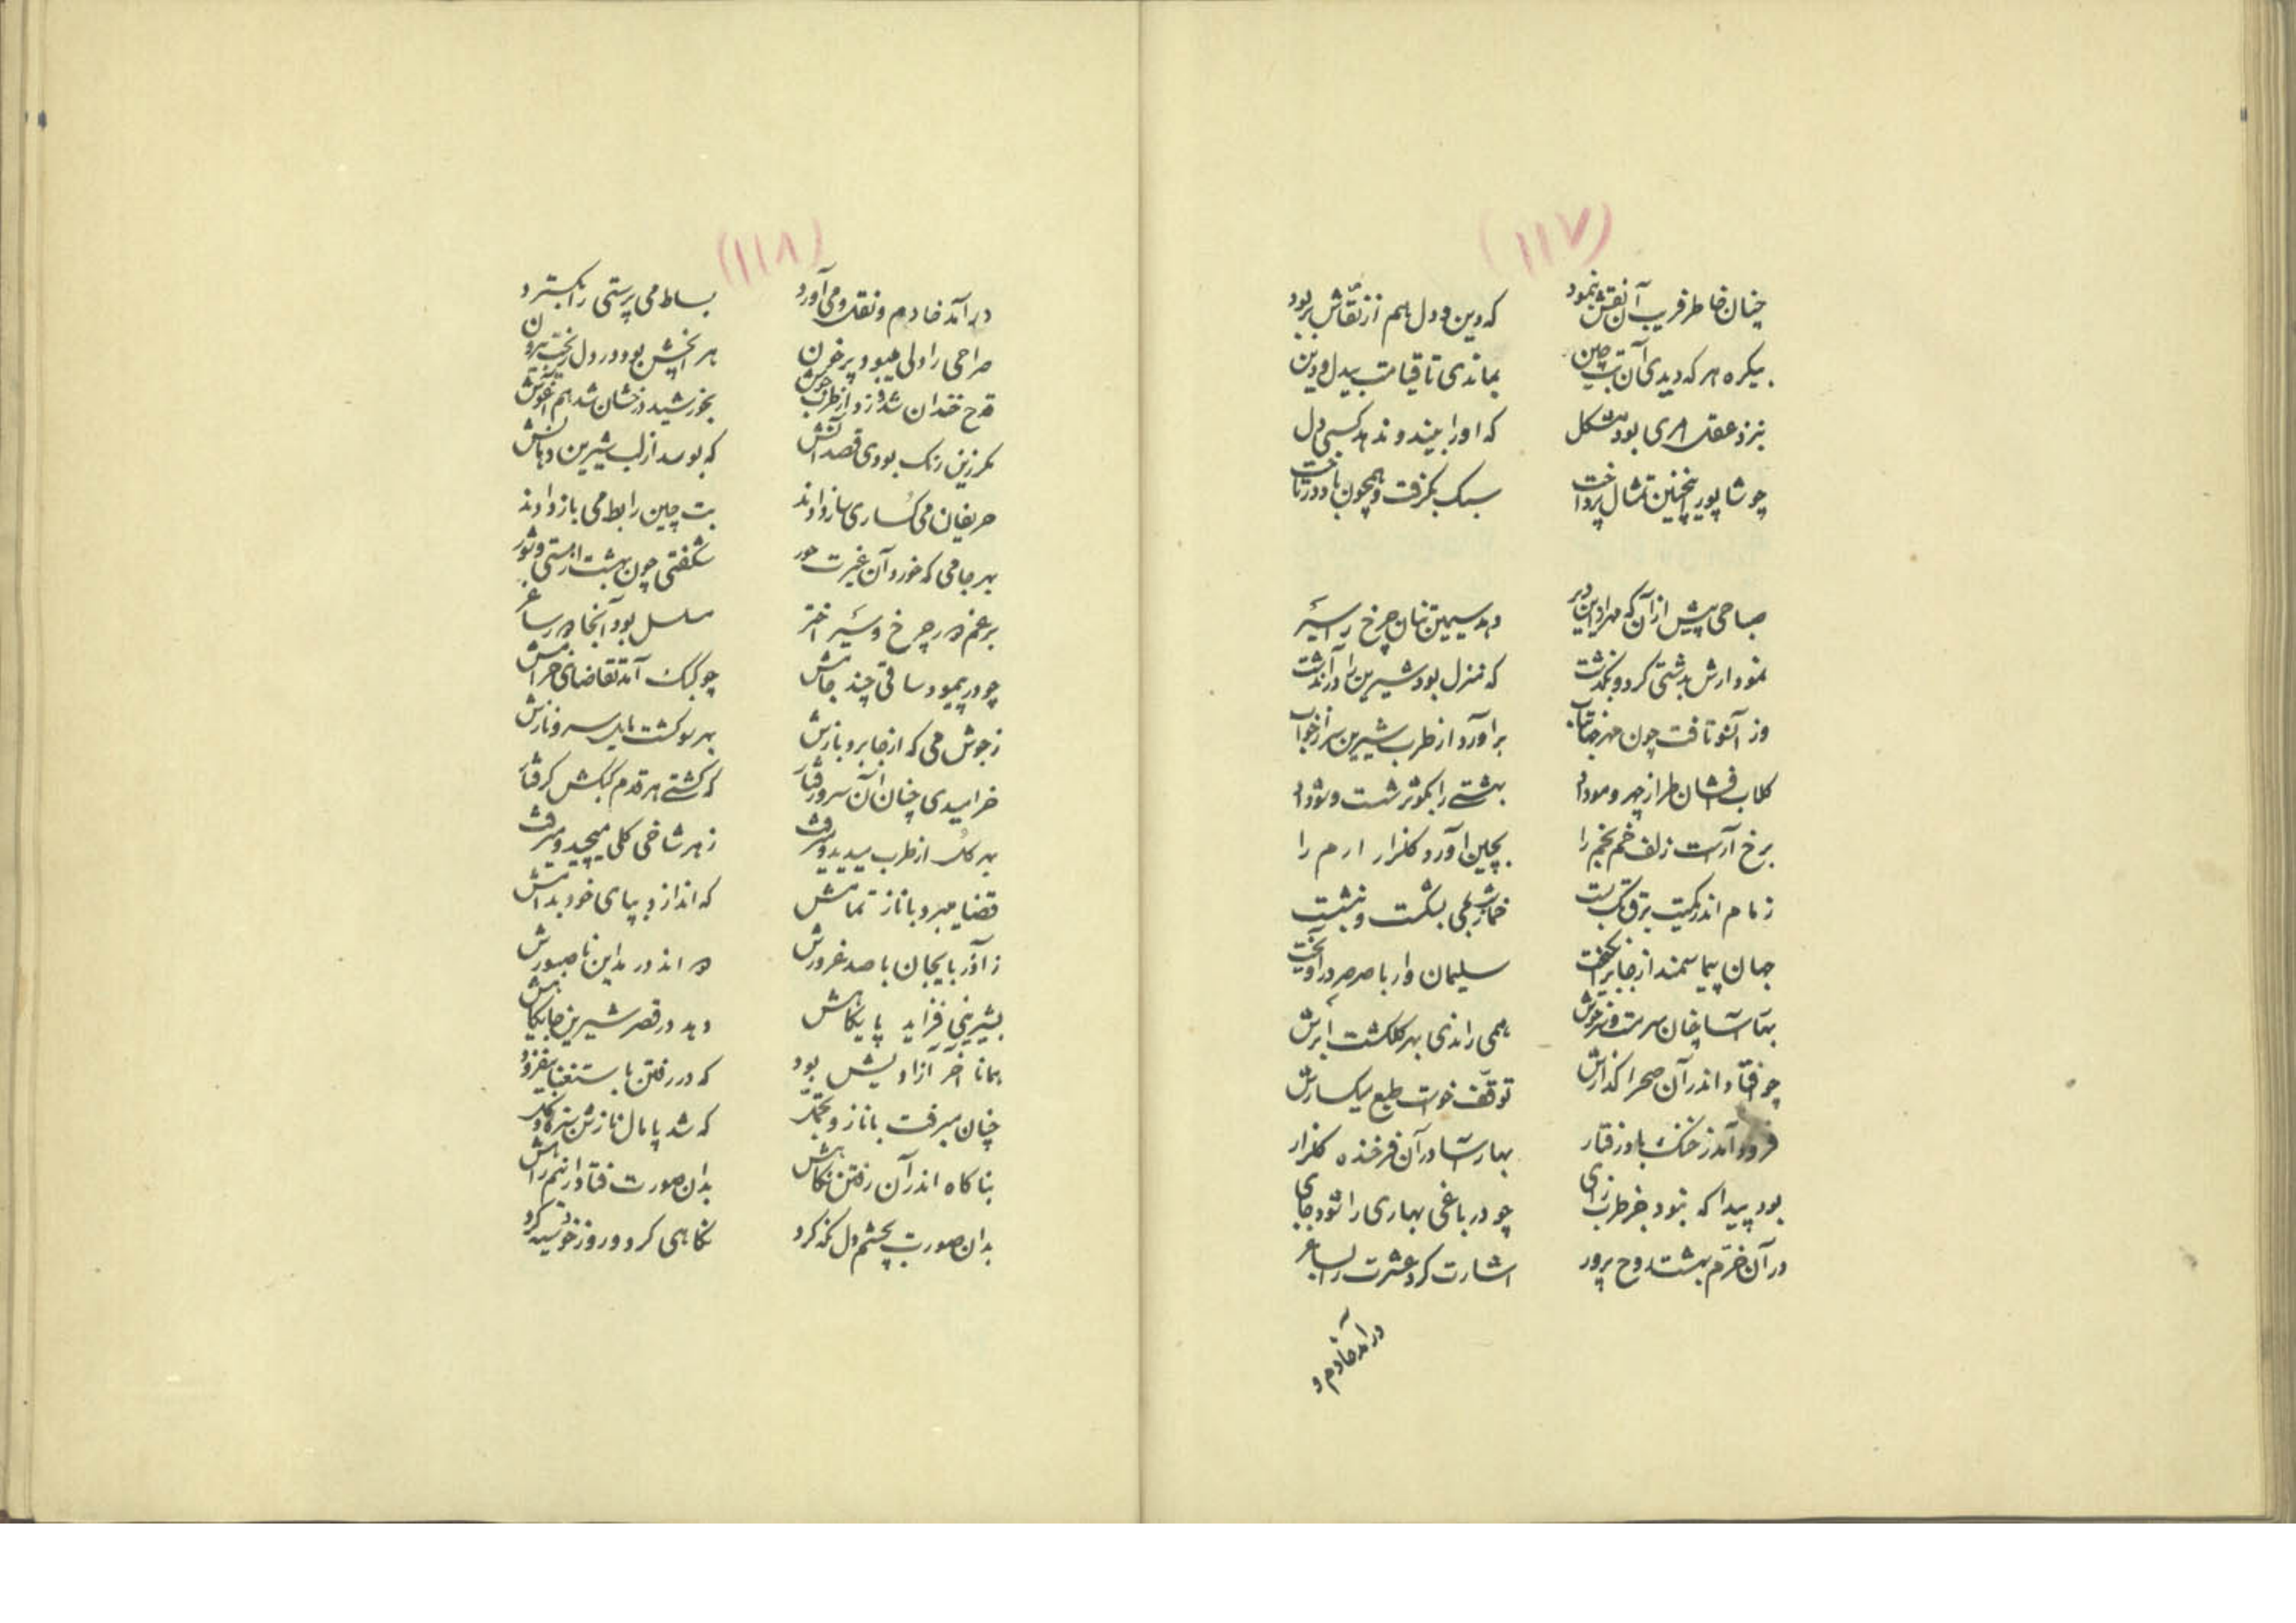 (۱۱۷)
چنان خاطر فریب آن نقش بنمود که دین و دل هم از نقّاش بربود
بیکره هر که دیدی آن بت چین بماندی تا قیامت بیدل و دین
بنزد عقل امری بود مشکل که او را بیند و ندهد کسی دل
چو شاپور اینچنین تمثال پرداخت سبک بگرفت و همچون باد در تاخت
صباحی پیش از آن که مهر این دیر دهد سیمین تنان چرخ را سَیر
نمودارش بدشتی کرد و بگذشت که منزل بود شیرین را در آن دشت
وز آنسو تافت چون مهر جهانتاب برآورد از طرب شیرین سر از خواب
کلاب افشان طراز چهر و مو داد بهشتی را بکوثر شست و شو داد
برخ آراست زلف خم بخم را بچین آورد کلزار ارم را
زمام اندر کمیت برق تک بست خمار بشکست و بنشست
جهان پیما سمند از جا برانکیخت سلیمان وار با صرصر درآویخت
سرمست و سرخوش همی راندی بهر کلکشت ابرش
چو افتاد اندر آن صحرا کذارش توقّف خواست طبع میکسارش
فرود آمد ز خنک باد رفتار بهارآسا در آن فرخنده کلزار
بود پیدا که نبود جز طرب زای چو در باغی بهاری را شود جای
در آن خرّم بهشت روح پرور اشارت کرد عشرت را بساغر
درآمد خادم و
(۱۱۸)
درآمد خادم و نقل و می آورد بساط می پرستی را بکسترد
صراحی را دلی میبود پر خون هر آنچش بود در دل ریخت بیرون
قدح خندان شد و زد از طرب جوش بخورشید درخشان شد هم آغوش
مکر زین رنک بودی قصد آنش که بوسد از لب شیرین دهانش
حریفان می کساری ساز دادند بت چین را بط می باز دادند
بهر جامی که خورد آن غیرت حور شکفتی چون بهشت از مستی و شور
برغم دور چرخ و سَیر اختر مسلسل بود آنجا دور ساغر
چو درپیمود ساقی چند جامش چو کبک آمد تقاضای خرامش
ز جوش می که از جا برد بازش بهر سو کشت مایل سرو نازش
خرامیدی چنان آن سرو رفتار که کشتی هر قدم کبکش کرفتار
بهر کل از طرب میدید و میرفت ز هر شاخی کلی میچید و میرفت
قضا میبرد با ناز تمامش که اندازد بپای خود بدامش
ز آذربایجان با صد غرورش دواند در مداین ناصبورش
بشیرینی فزاید پایکاهش دهد در قصر شیرین جایکاهش
همانا آخر آزادیش بود که در رفتن باستغنا بیفزود
چنان میرفت با ناز و که شد پامال نازش
بناکاه اندر آن رفتن نکاهش بدان صورت فتاد از نیم راهش
بدان صورت بچشم دل نکه کرد نکاهی کرد و روز خود سیه کرد